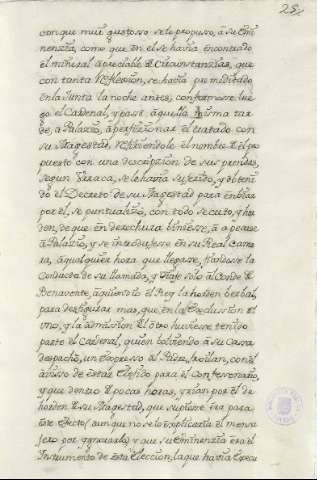 25
con que muy gustosso se le propuso, à su Emi-
nenzia, como que en el se havia encontrado
el mineral apreciable de Circunstanzias, que
con tanta reflession, se havia premeditado
en la Junta la noche antes, conformosse lue-
go el Cardenal, y passò aquella misma tar-
de, a Palazio, à perfizionar el tratado con
su Magestad, refiriendole el nombre del pro
puesto con una descripzion de sus prendas,
segun havia sido, y obteni-
do el Decreto de su Magestad para embiar
por el, se puntualizò, con todo secreto, y hor
den, de que en derechura biniesse, à apearse
à Palazio, y se introdujesse en su Real Cama
ra, à qualquier hora que llegasse, fiandose la
Conducta de su llamada, y viaje solo al Conde de
Benavente, à quien dio el Rey la horden berbal,
para desfigurar mas, que en la Exclussion del
uno, y la admission del otro huviesse tenido
parte el Cardenal, quien bolviendo à su Cassa
despachò, un expresso al Padre froilan, con el
avisso de estar elejido para el Confessonario,
y que dentro de pocas horas, yrian por el de
horden de su Magestad, que supiesse era para
este efecto, aunque no se lo explicaria el mensa
jero por ygnorarlo, y que su Eminenzia era el
Instrumento de esta Eleccion, la que havia